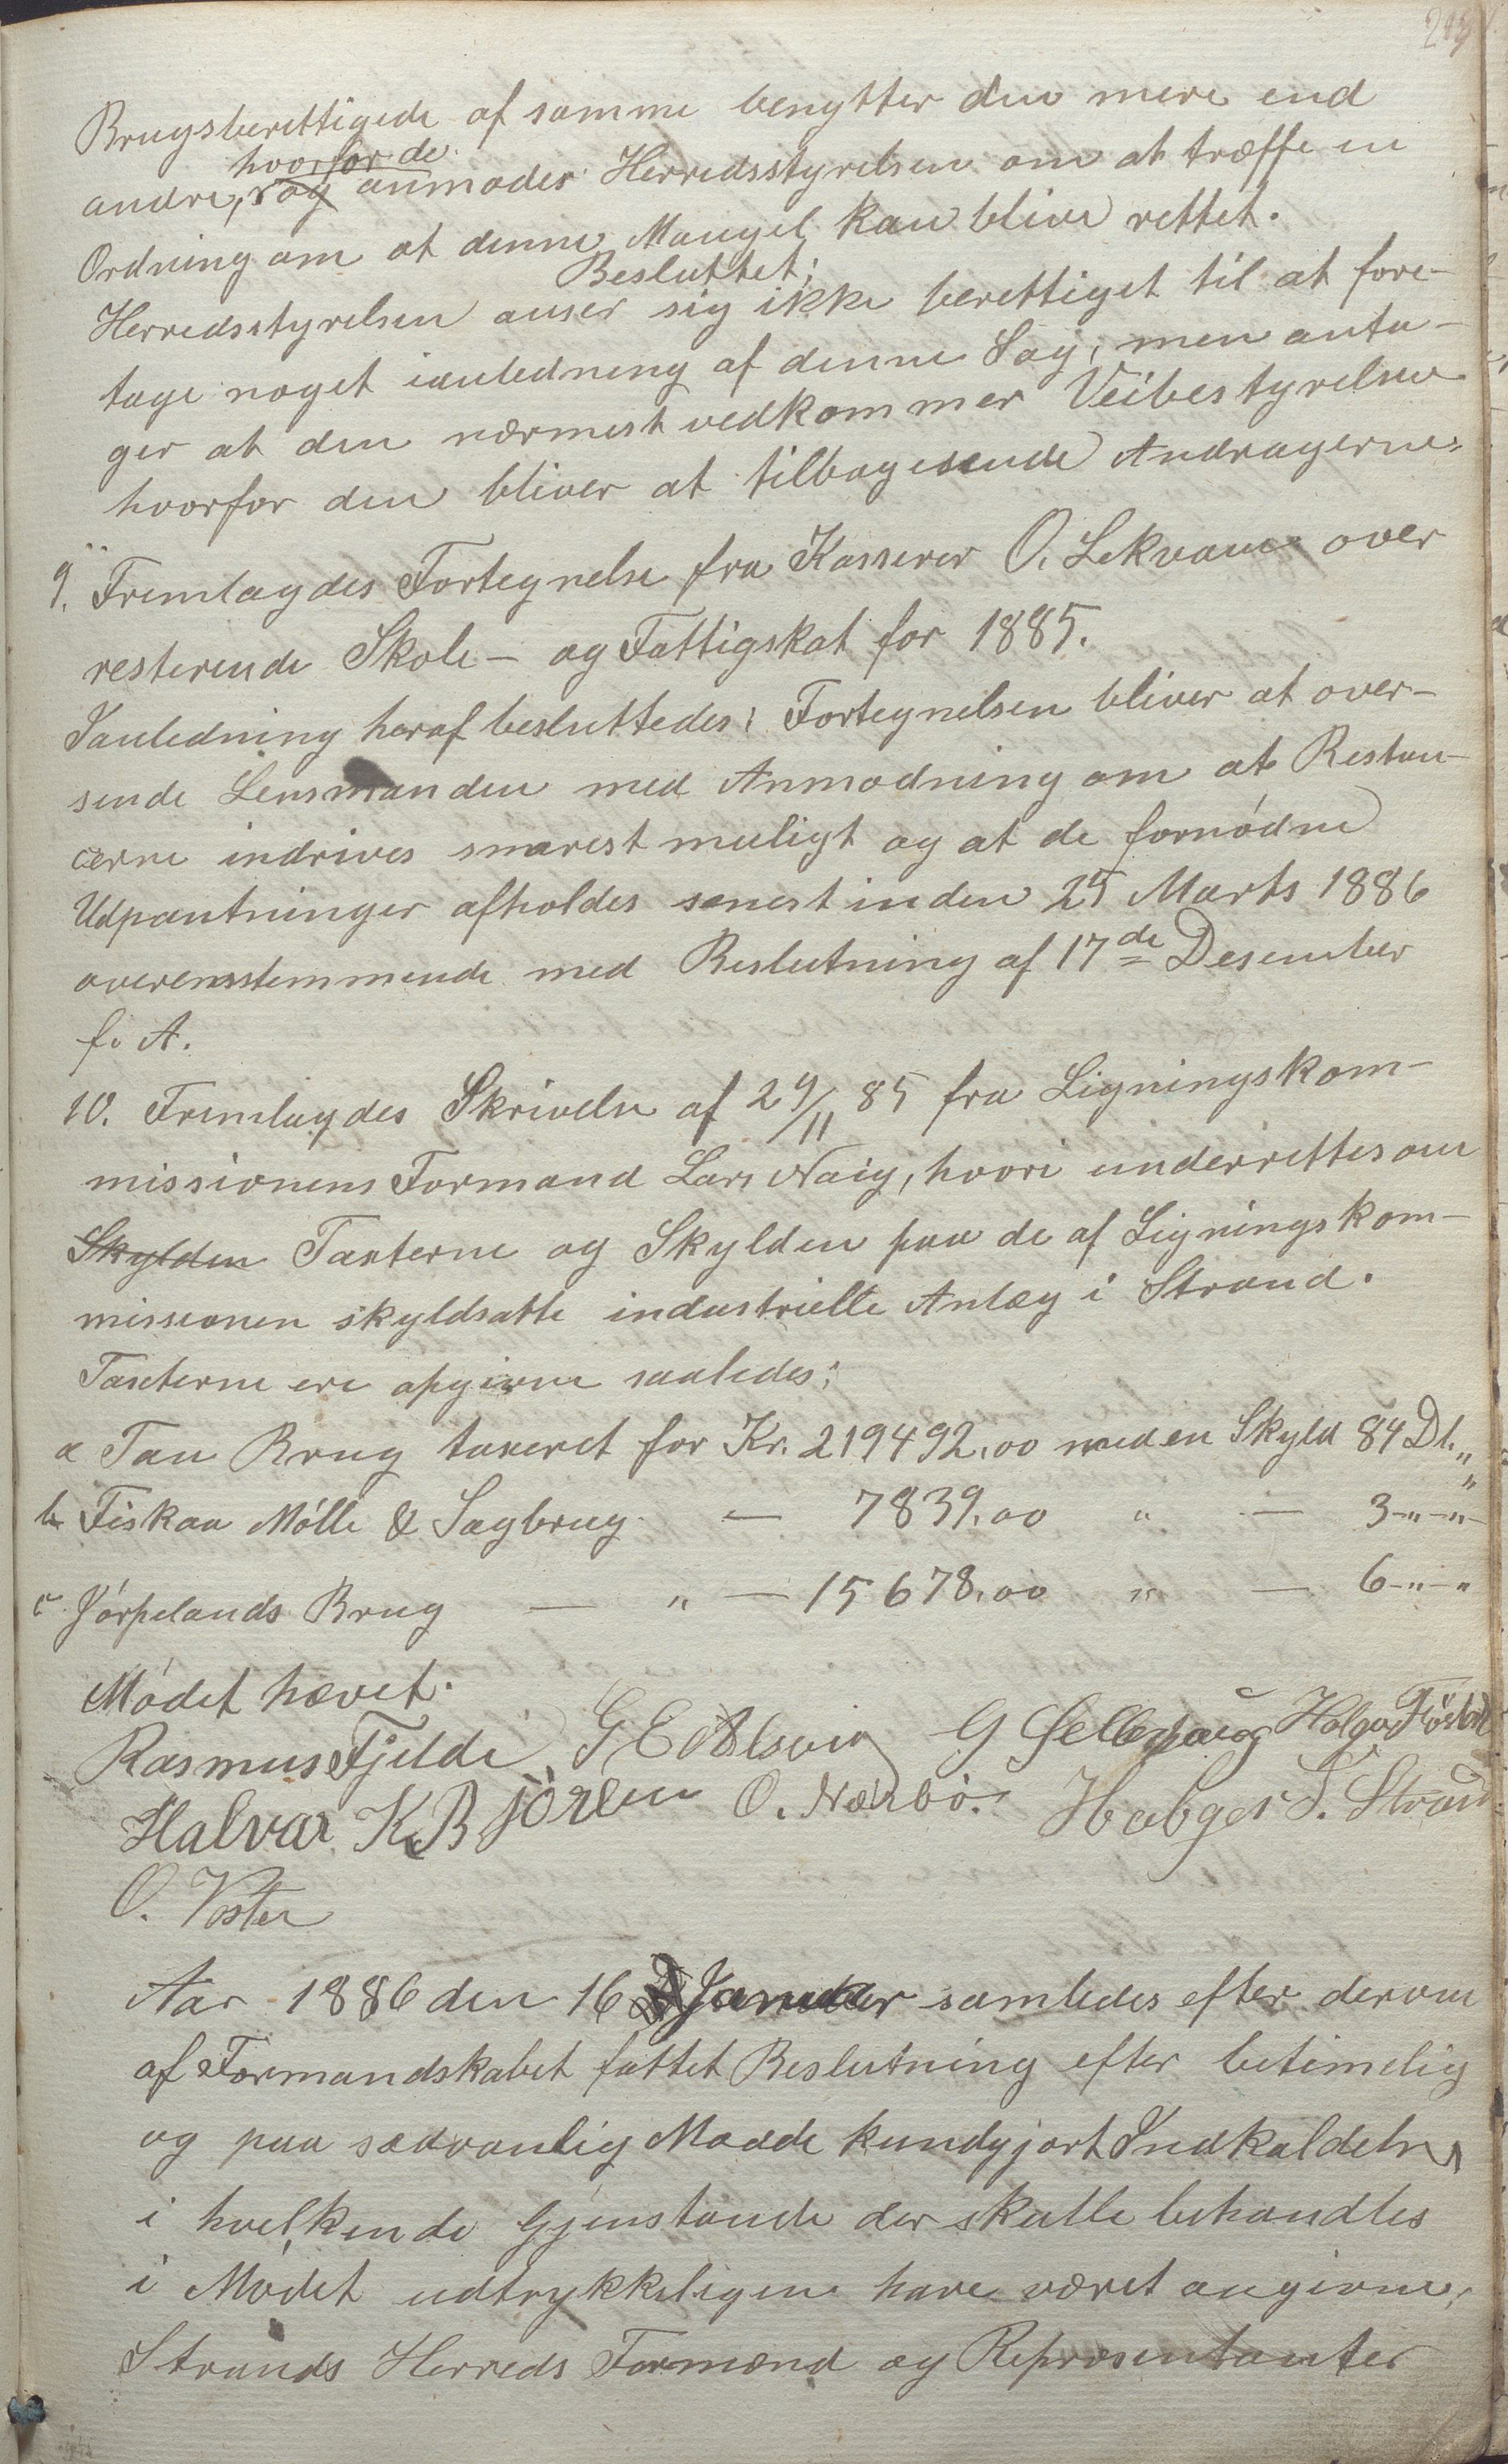 Brugsberettigede af samme benytter den mere end
hvorfor de
andre, og anmoder Herredsstyrelsen om at træffe en
Ordning om at denne Mangel kan blive rettet.
Besluttet:
Herredsstyrelsen anser sig ikke berettiget til at fore-
tage noget ianledning af denne Sag, men anta-
ger at den nærmest vedkommer Veibestyrelsen
hvorfor den bliver at tilbagesende Andragerne.
9. Fremlagdes Fortegnelse fra Kasserer O. Lekvam over
resterende Skole- og Fattigskat for 1885.
Ianledning heraf besluttedes: Fortegnelsen bliver at over-
sende Lensmanden med Anmodning om at Restan-
cerne indrives snarest muligt og at de fornødne
Udpantninger afholdes senest inden 25 Marts 1886
overensstemmende med Beslutning af 17de Desember
f. A.
10. Fremlagdes Skrivelse af 29/11 85 fra Ligningskom-
missionens Formand Lars Naig, hvori underrettes om
Skylden Taxterne og Skylden paa de af Ligningskom-
missionen skyldsatte industrielle Anlæg i Strand.
Taxterne ere opgivne saaledes:
a Tau Brug taxeret for Kr. 219492.00 med en Skyld 84 Dl. "
b Fiskaa Mølle & Sagbrug — 7839.00 " — 3-"-"-
c. Jørpelands Brug — " — 15678.00 " — 6-"-"
Mødet hævet.
Rasmus Fjelde G E Alsvig G Holger
Halvar K Bjørlen O. Nærbø. S. Strand
O. Voster
Aar 1886 den 16 d Januar samledes efter derom
af Formandskabet fattet Beslutning efter betimelig
og paa sædvanlig Maade kundgjort Indkaldelse,
i hvilken de Gjenstande der skulle behandles
i Mødet udtrykkeligen have været angivne,
Strands Herreds Formænd og Repræsentanter